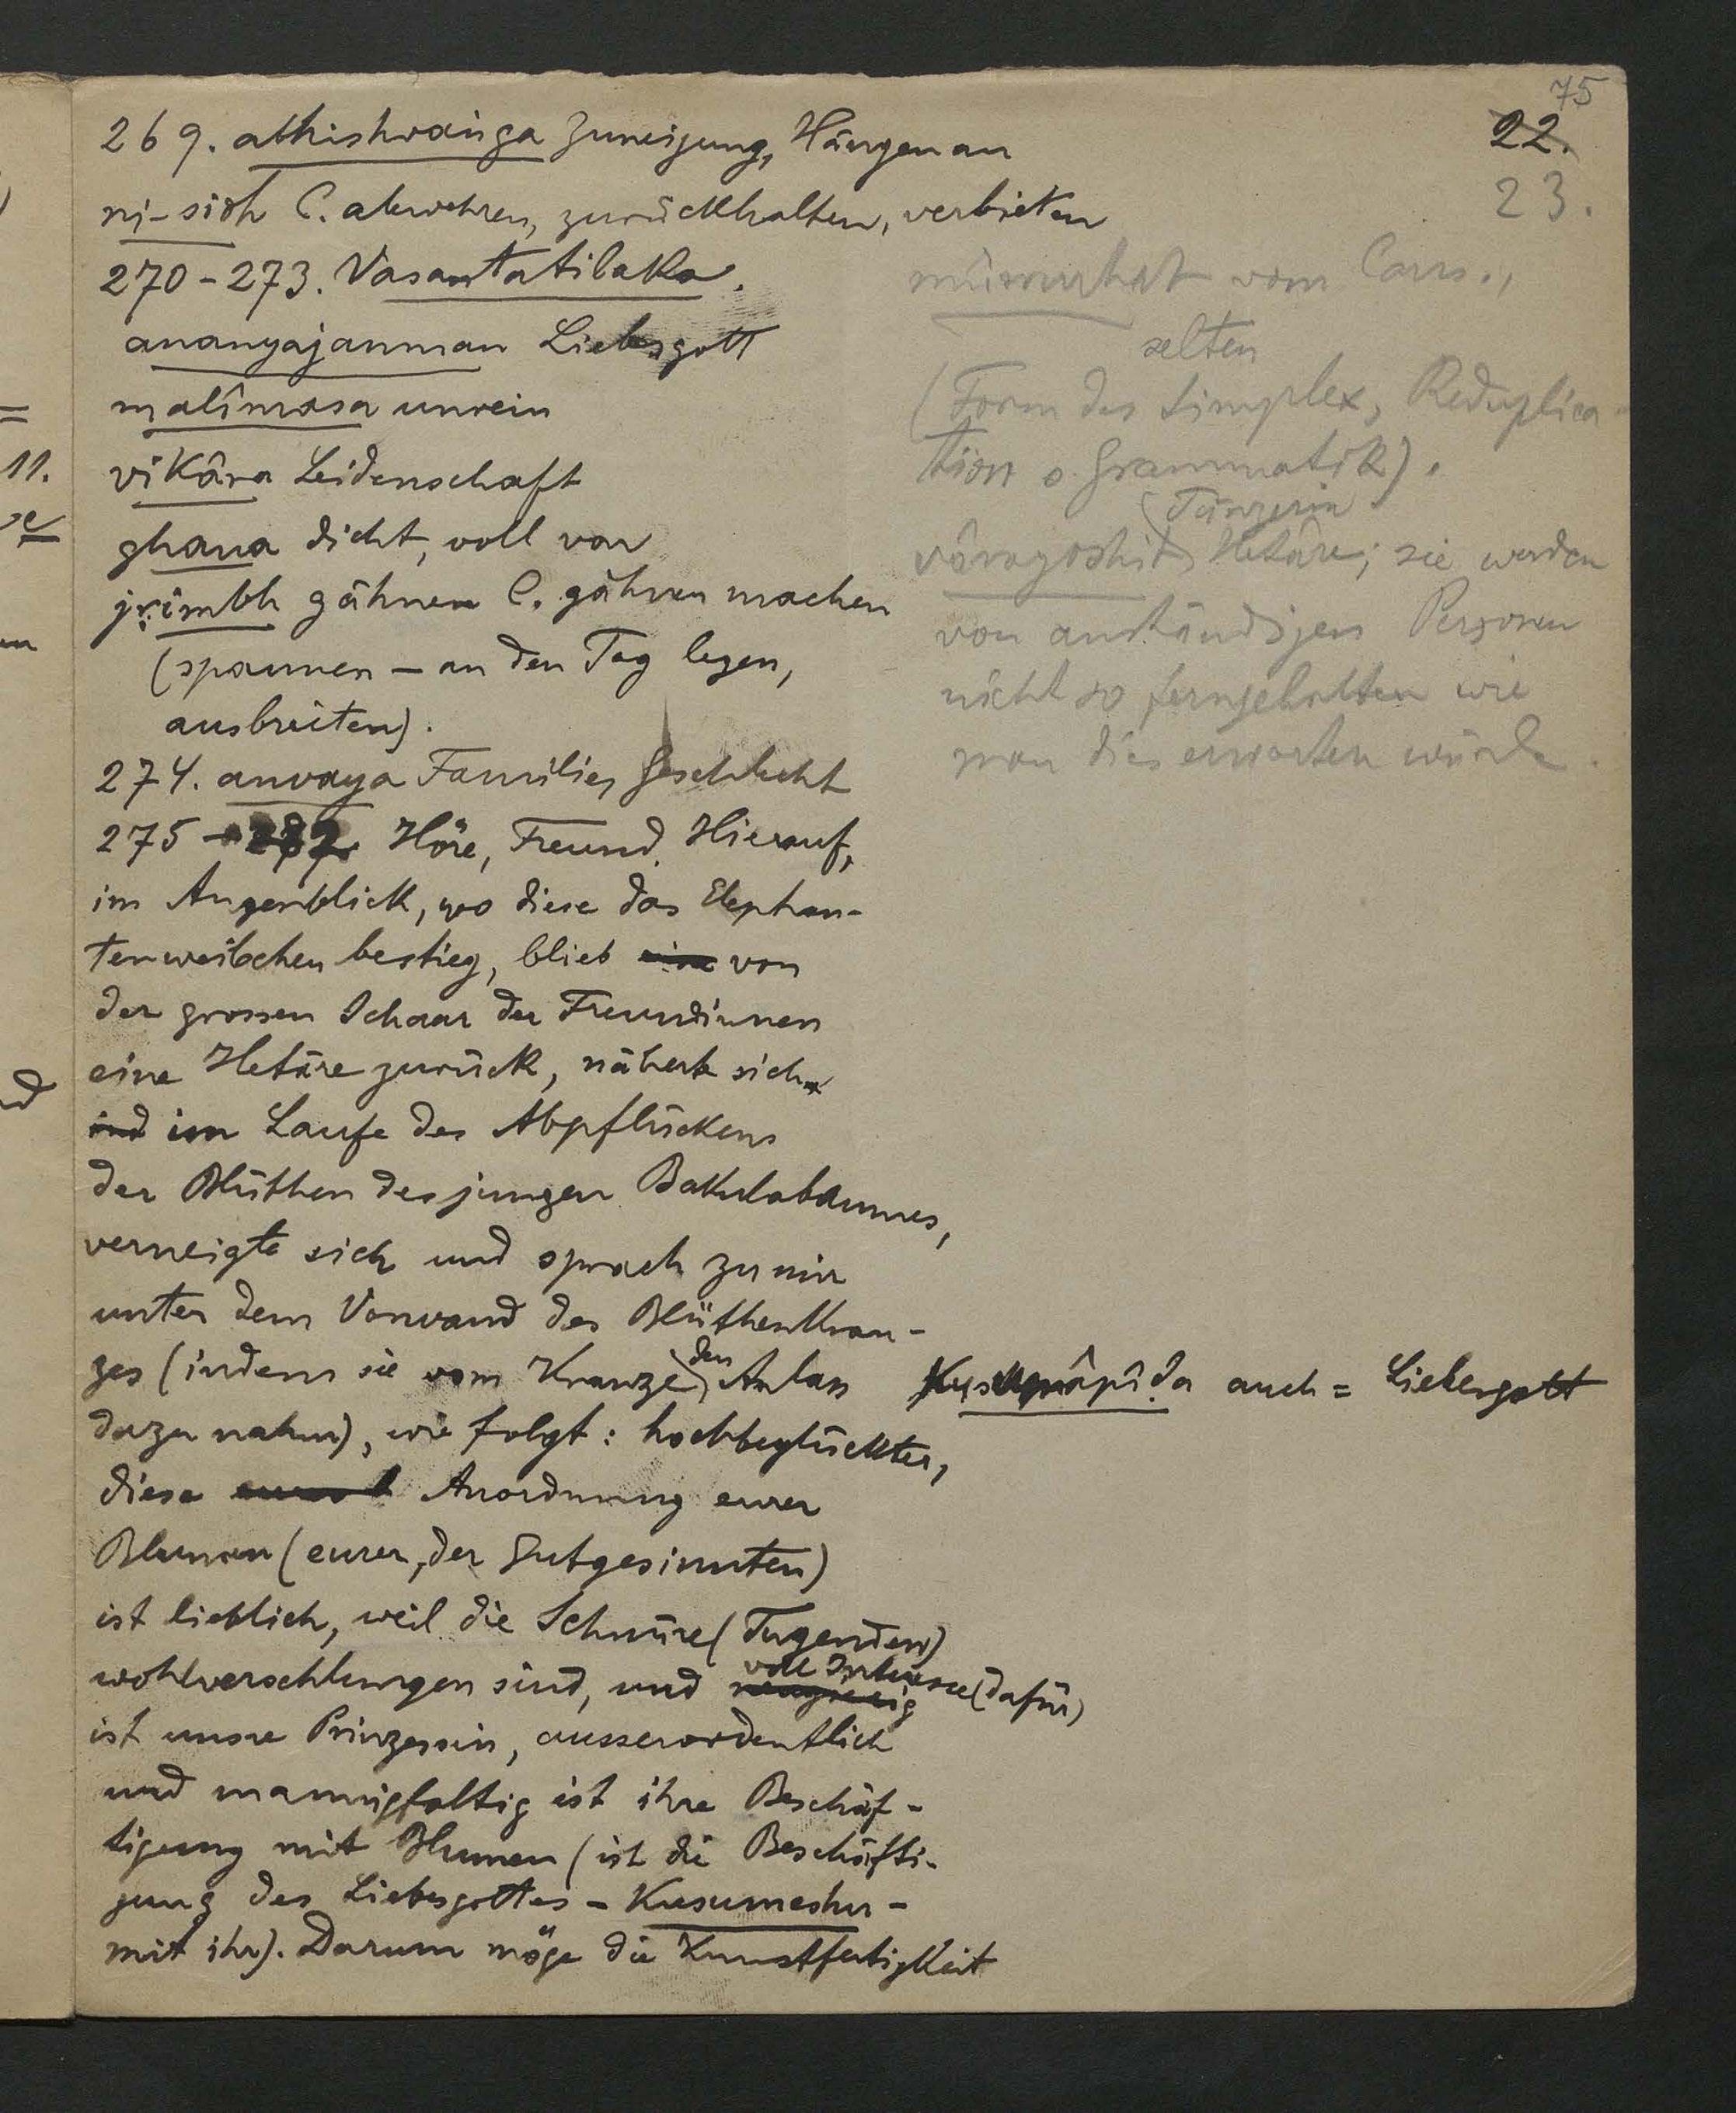 75
22.
23.
269. abhishvaṅga Zuneigung, Hängen an
ni-sidh C. abwehren, zurückhalten, verbieten
270-273. Vasantatilaka.
ananyajanman Liebesgott
malîmasa unrein
vikâra Leidenschaft
ghana dicht, voll von
jṛimbh gähnen C. gähnen machen
(spannen – an den Tag legen,
ausbreiten).
274. anvaya Familie, Geschlecht
275 - 282 Höre, Freund. Hierauf,
im Augenblick, wo diese das Elephan-
tenweibchen bestieg, blieb eine von
der grossen Schaar der Freundinnen
eine Hetäre zurück, näherte sich
und im Laufe des Abpflückens
der Blüthen des jungen Bakulabaumes,
verneigte sich und sprach zu mir
unter dem Vorwand des Blüthenkran-
zes (indem sie vom Kranze den Anlass
dazu nahm), wie folgt: hochbeglückter,
diese Anordnung eurer
Blumen (eurer, der Gutgesinnten)
ist lieblich, weil die Schnüre (Tugenden)
wohlverschlungen sind, und neugierig voll Interesse (dafür)
ist unsre Prinzessin, ausserordentlich
und mannigfaltig ist ihre Beschäf-
tigung mit Blumen (ist die Beschäfti-
gung des Liebesgottes - Kusumeshu -
mit ihr). Darum möge die Kunstfertigkeit
vom Caus.,
selten
(Form des Simplex, Reduplica-
tion s. Grammatik).
(Tänzerin
vârayoshit Hetäre; sie werden
von anständigen Personen
nicht so ferngehalten wie
man dies erwarten würde.
Kusumâpîḍa auch = Liebesgott